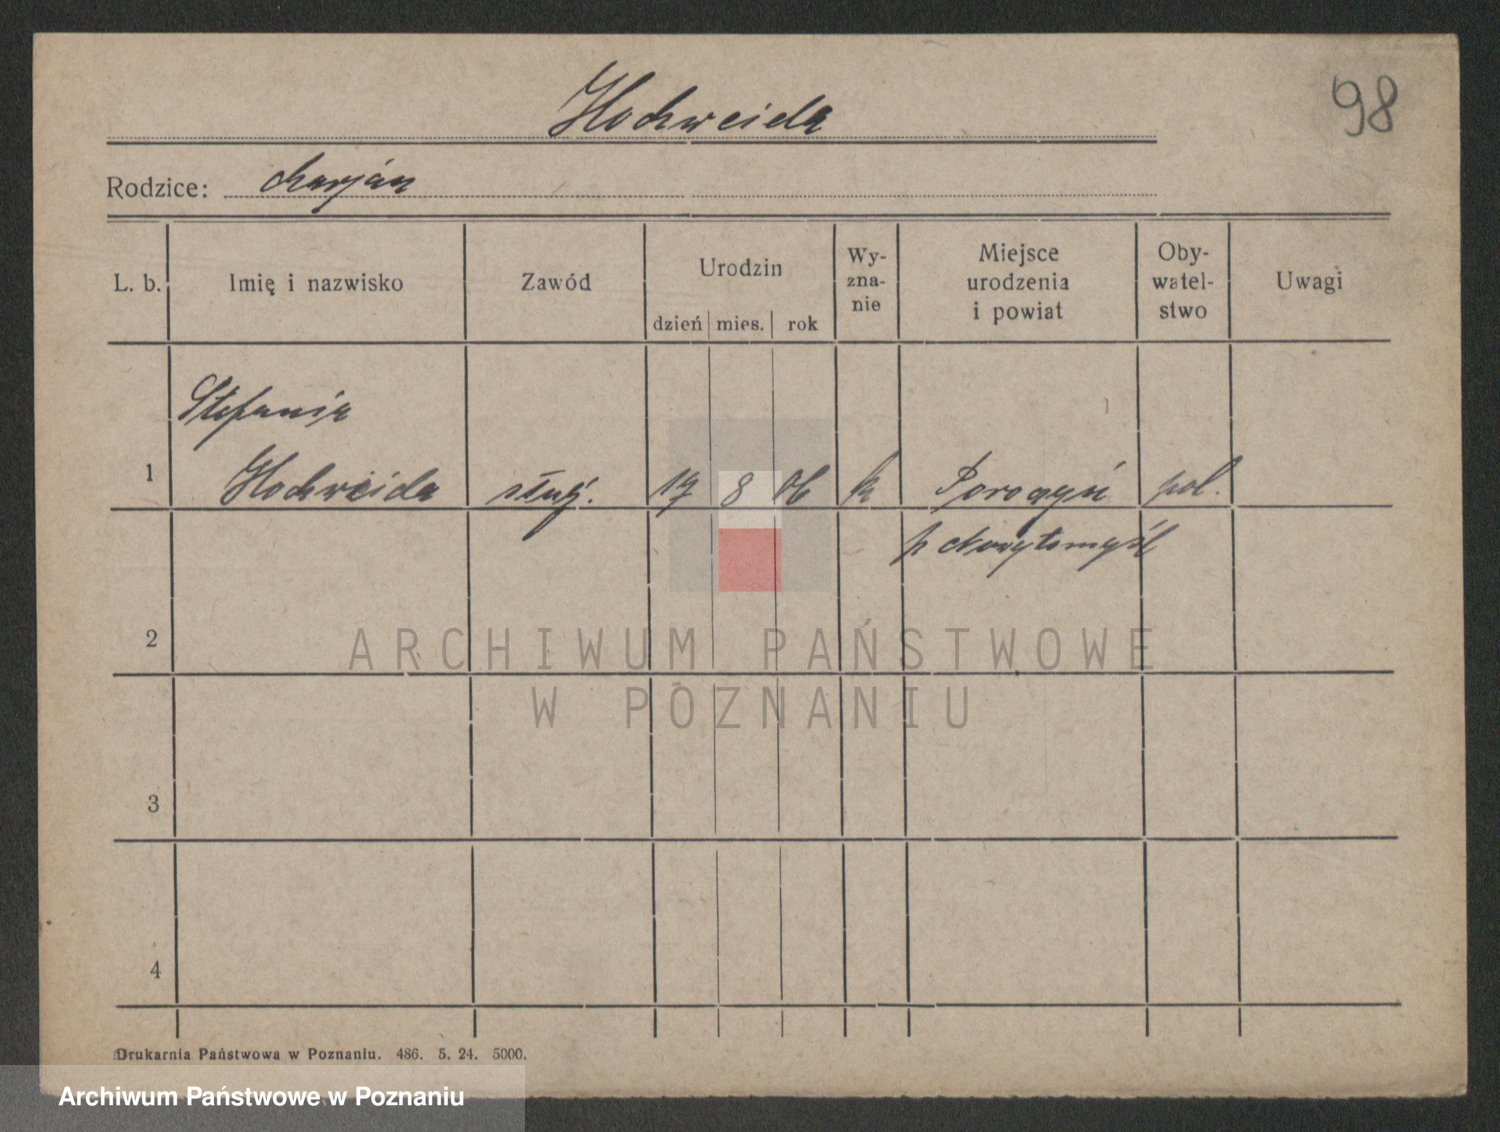 Hochweida
98
Rodzice: Marjan
L. b. Imię i nazwisko Zawód Urodzin dzień mies. rok Wy-zna-nie Miejsce urodzenia i powiat Oby-watel-stwo Uwagi
Stefania
1 Hochweida służ. 17 8 06 k Porażyn pol.
p Nowytomyśl
2
ARCHIWUM PAŃSTWOWE
W POZNANIU
3
4
Drukarnia Państwowa w Poznaniu. 486. 5. 24. 5000.
Archiwum Państwowe w Poznaniu